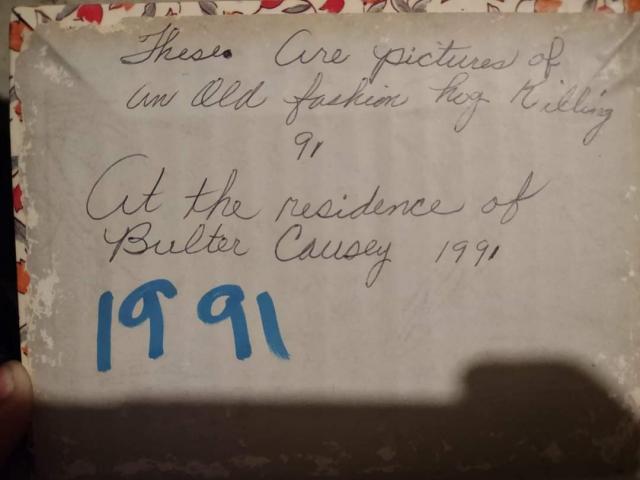 These Are pictures of
an Old fashion hog Killing
91
At the residence of
Bulter Causey 1991
1991